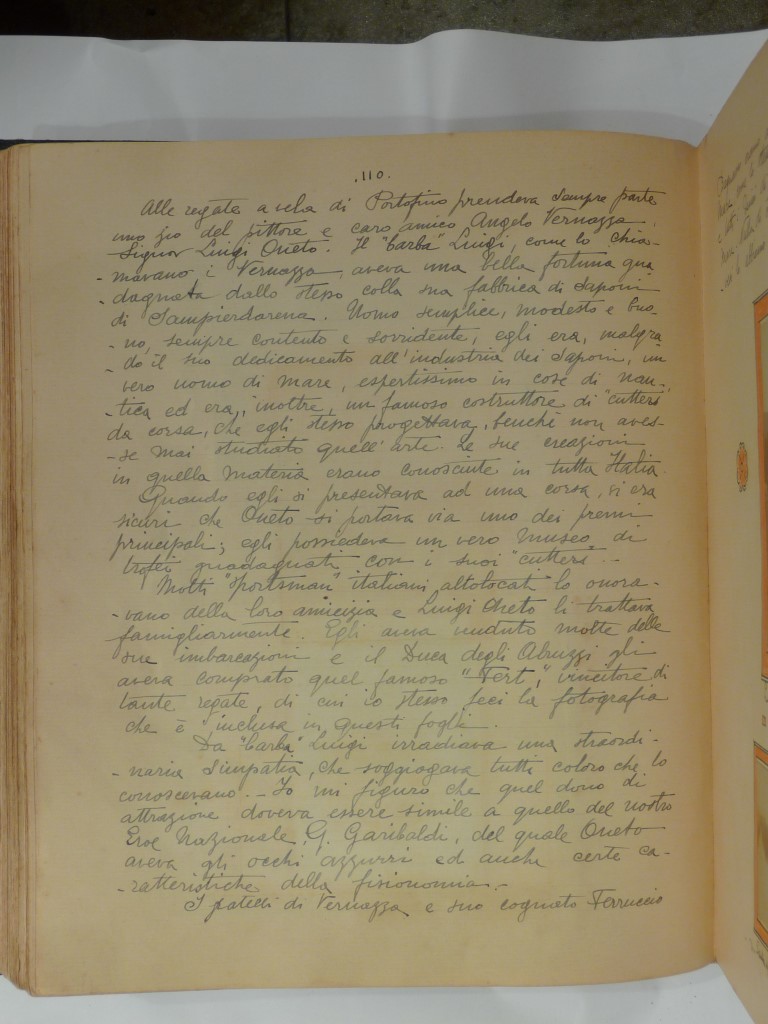 .110.
Alle regate a vela di Portofino prendeva sempre parte
uno zio del pittore e caro amico Angelo Vernazza,
Signor Luigi Oneto. Il "barba" Luigi, come lo chia-
- mavano i Vernazza, aveva una bella fortuna gua
- dagnata dallo stesso colla sua fabbrica di saponi
di Sampierdarena. Uomo semplice, modesto e buo-
- no, sempre contento e sorridente, egli era, malgra
- do il suo dedicamento all'industria dei saponi, un
vero uomo di mare, espertissimo in cose di nau-
- tica ed era, inoltre, un famoso costruttore di "cutters"
da corsa, che egli stesso progettava, benchè non aves-
- se mai studiato quell'arte. Le sue creazioni
in quella materia erano conosciute in tutta Italia.
Quando egli si presentava ad una corsa, si era
sicuri che Oneto si portava via uno dei premi
principali; egli possiedeva un vero museo di
trofei guadagnati con i suoi "cutters". -
Molti "sportsman" italiani, altolocati lo onora-
- vano della loro amicizia e Luigi Oneto li trattava
famigliarmente. Egli aveva venduto molte delle
sue imbarcazioni e il Duca degli Abruzzi gli
aveva comprato quel famoso "Fert", vincitore di
tante regate, di cui io stesso feci la fotografia
che è inclusa in questi fogli.
Da "barba" Luigi irradiava una straordi-
- naria simpatia, che soggiogava tutti coloro che lo
conoscevano. - Io mi figuro che quel dono di
attrazione doveva essere simile a quello del nostro
Eroe Nazionale, G. Garibaldi, del quale Oneto
aveva gli occhi azzurri ed anche certe ca-
- ratteristiche della fisionomia. -
I fratelli di Vernazza e suo cognato Ferruccio